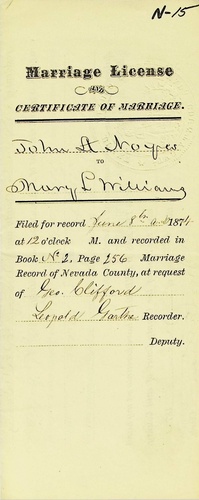 N-15
Marriage License
AND
CERTIFICATE OF MARRIAGE.
John A Noyes
TO
Mary L Williams
Filed for record June 8th A.D. 1874
at 12 o'clock M. and recorded in
Book No 2, Page 256 Marriage
Record of Nevada County, at request
of Geo. Clifford
Leopold Garthe Recorder.
Deputy.